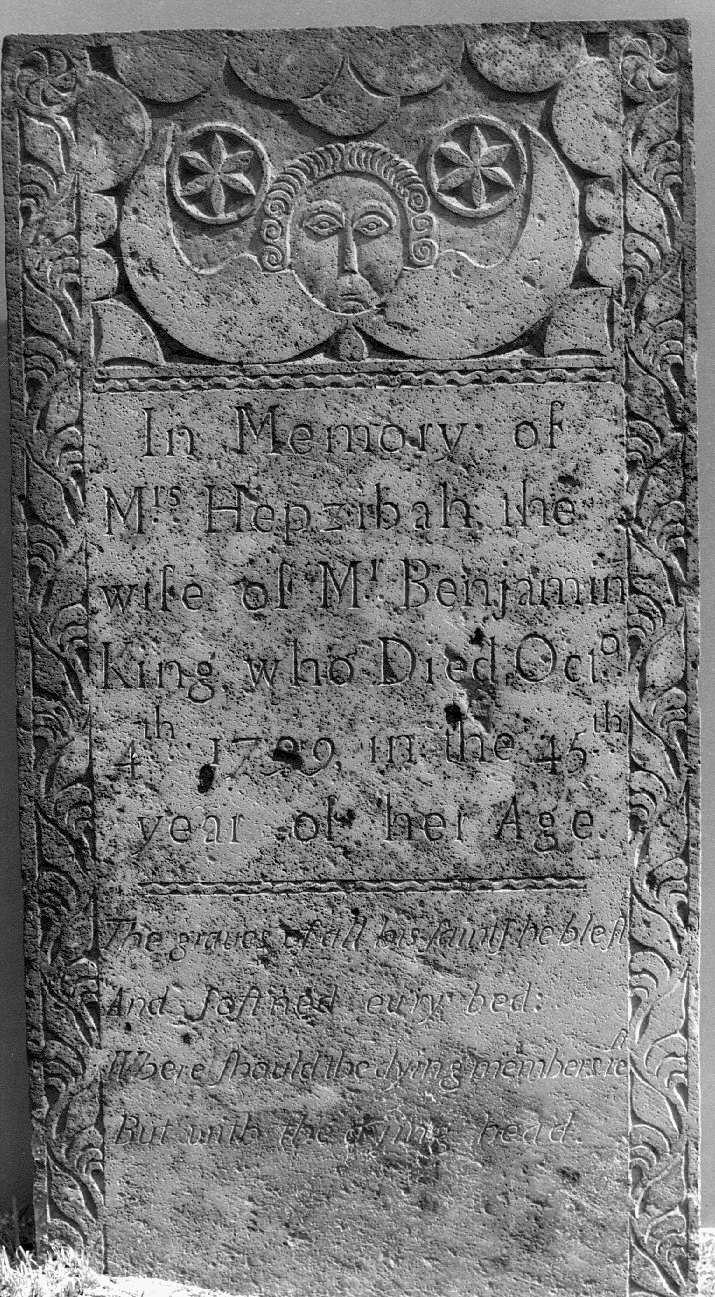 In Memory of
Mrs Hepzibah the
wife of Mr Benjamin
King who Died Octo
4th 1789, in the 45th
year of her Age.
The graues of all his ſaintſ he bleſt
And ſoftned eu'ry bed:
Where ſhould the dying members reſt
But with the dying head.